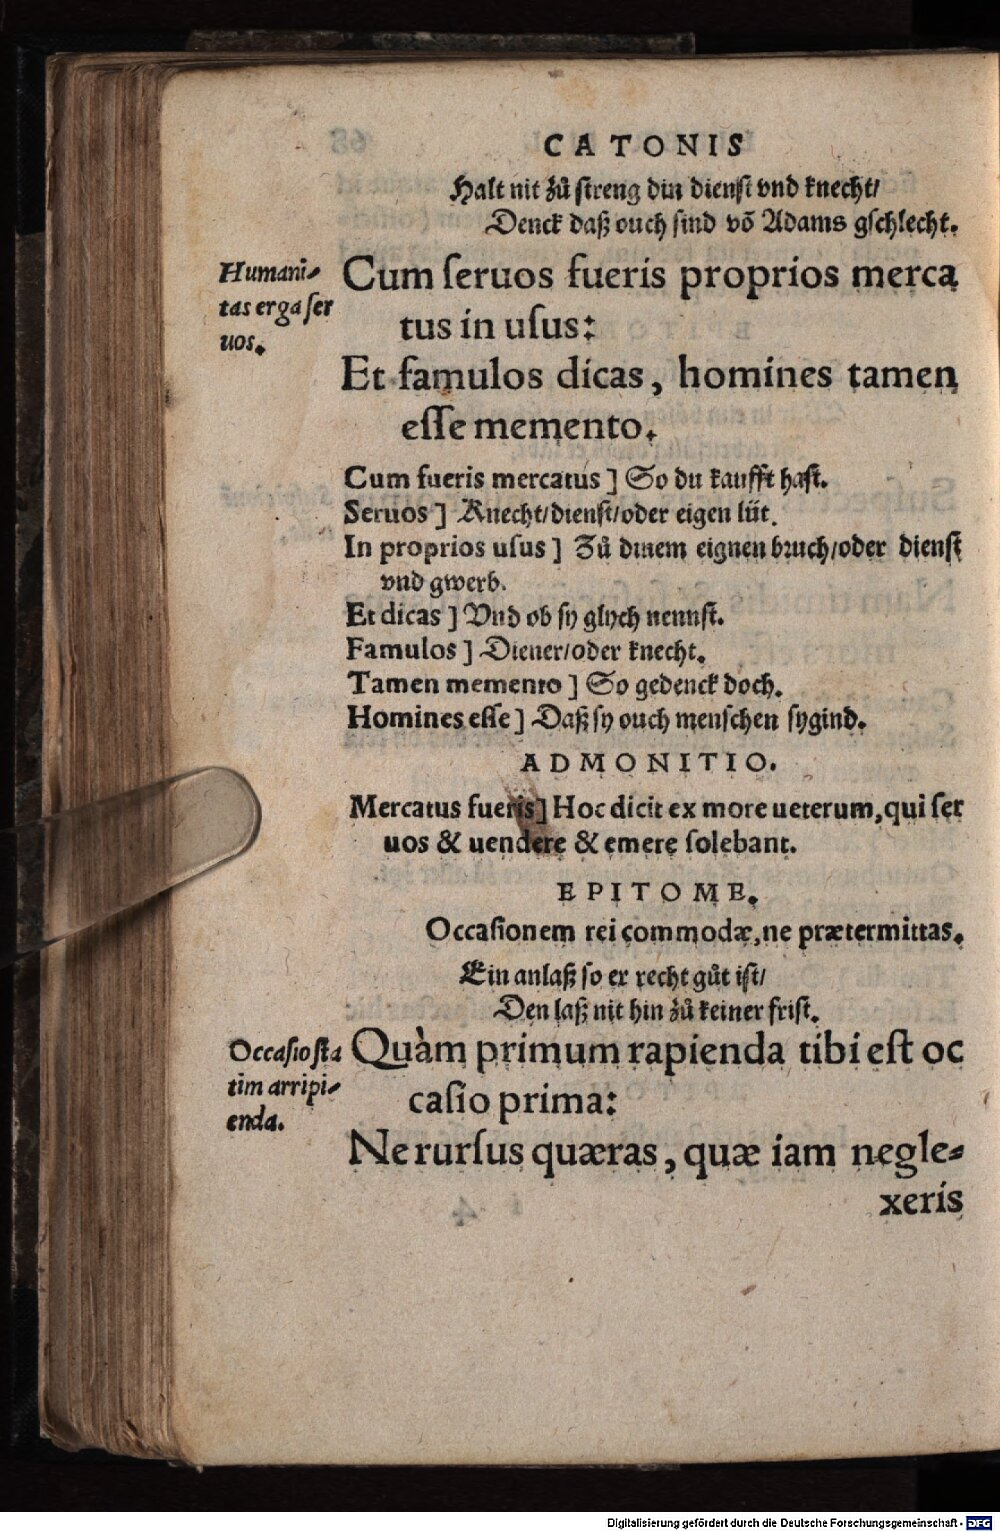 CATONIS
Halt nit zů streng din dienst vnd knecht/
Denck daß ouch sind võ Adams gschlecht.
Humani-
tas erga ſer
uos.
Cum ſeruos fueris proprios merca
tus in uſus:
Et famulos dicas, homines tamen
eſſe memento.
Cum fueris mercatus] So du kaufft haſt.
Seruos] Knecht/dienſt/oder eigen lüt.
In proprios uſus] Zů dinem eignen bruch/oder dienſt
vnd gwerb.
Et dicas] Vnd ob ſy glych nennſt.
Famulos] Diener/oder knecht.
Tamen memento] So gedenck doch.
Homines eſſe] Daß ſy ouch menſchen ſygind.
ADMONITIO.
Mercatus fueris] Hoc dicit ex more ueterum, qui ſer
uos & uendere & emere ſolebant.
EPITOME.
Occaſionem rei commodæ, ne prætermittas.
Ein anlaß ſo er recht gůt iſt/
Den laß nit hin zů keiner friſt.
Occaſio ſta
tim arripi-
enda.
Quàm primum rapienda tibi eſt oc
caſio prima:
Ne rurſus quæras, quæ iam negle-
xeris
Digitalisierung gefördert durch die Deutsche Forschungsgemeinschaft - DFG